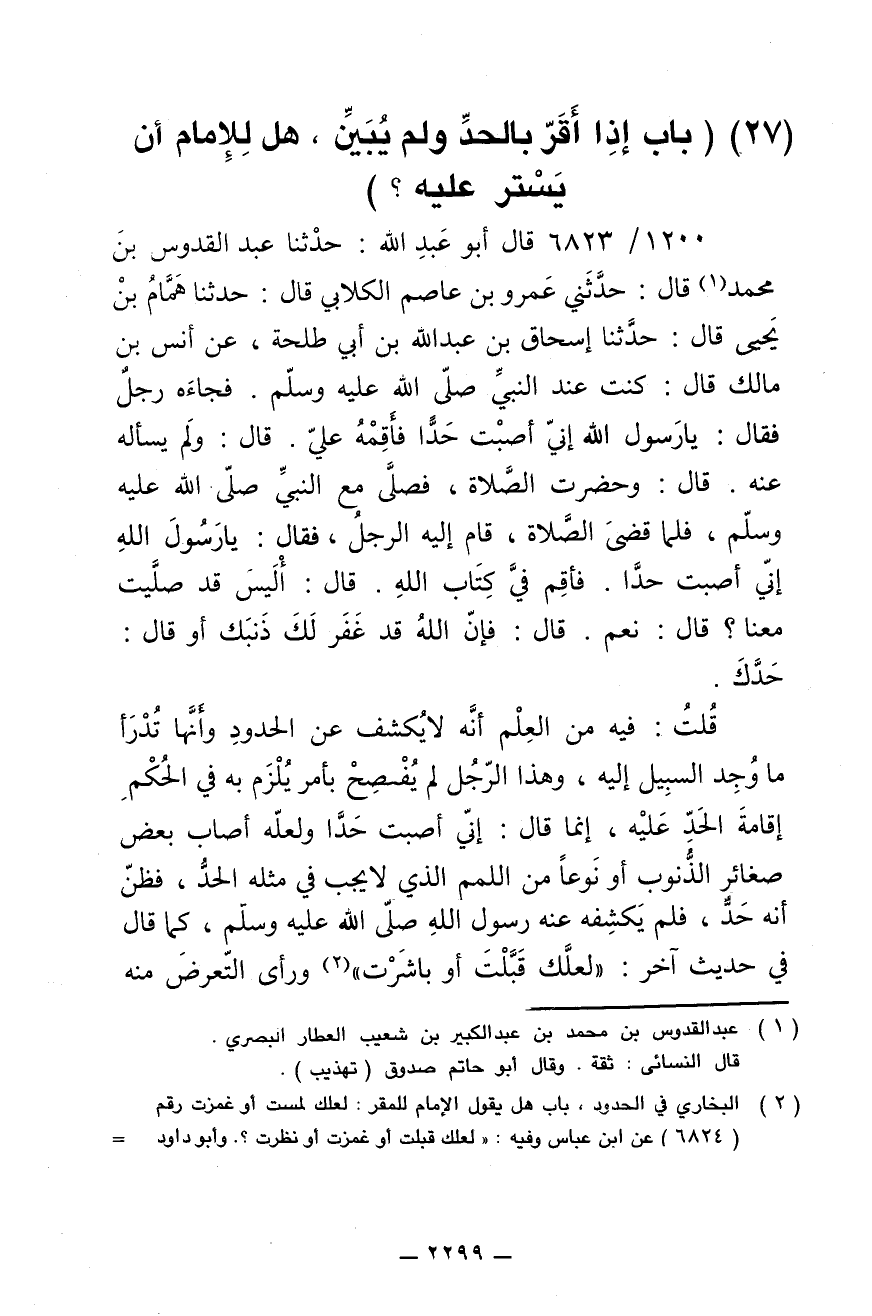 (٢٧) ( باب إِذا أَقَرّ بالحدِّ ولم يُبَيِّن ، هل لِلإِمام أن
يَسْتر عليه ؟ )
١٢٠٠/ ٦٨٢٣ قال أبو عَبدِ الله : حدْثنا عبد القدوس بنَ
محمد(١) قال : حدَّثَني عَمرو بن عاصم الكلابي قال : حدثنا هَمَّامُ بنْ
يَحيى قال : حدَّثنا إسحاق بن عبدالله بن أبي طلحة ، عن أنس بن
مالك قال : كنت عند النبيِّ صلّى الله عليه وسلّم . فجاءَه رجلٌ
فقال : يارَسول الله إنيّ أصبْت حَدًّا فأَقِمْهُ عليّ . قال : ولَم يسأله
عنه . قال : وحضرت الصَّلاة ، فصلَّى مع النبيِّ صلّى الله عليه
وسلّم ، فلما قضىَ الصَّلاة ، قام إليه الرجلُ ، فقال : يارَسُولَ اللهِ
إنيّ أصبت حدَّا . فأقِم فيَّ كِتَاب اللهِ . قال : أْلَيسَ قد صلَّيت
معنا ؟ قال : نعم . قال : فإنّ اللهُ قد غَفَر لَكَ ذَنبَك أو قال :
حَدَّكَ .
قُلتُ : فيه من العِلْم أنَّه لايُكشف عن الحدودِ وأَنَّها تُدْرَأ
ما وُجِد السبِيل إليه ، وهذا الرّجُل لم يُفْصِحْ بأمر يُلْزَم به في الحُكْمِ
إقامةَ الحَدِّ عَليْه ، إنما قال : إنيّ أصبت حَدَّا ولعلّه أصاب بعض
صغائر الذُّنوب أو نَوعاً من اللمم الذي لايجب في مثله الحدُّ ، فظنّ
أنه حَدٌّ ، فلم يَكشِفه عنه رسول اللهِ صلّى الله عليه وسلّم ، كما قال
في حديث آخر : «لعلَّك قَبَّلْتَ أو باشَرْت»(٢) ورأى التّعرضَ منه
(١) عبدالقدوس بن محمد بن عبدالكبير بن شعيب العطار البصري .
قال النسائى : ثقة . وقال أبو حاتم صدوق ( تهذيب ) .
(٢) البخاري في الحدود ، باب هل يقول الإمام للمقر : لعلك لمست أو غمزت رقم
( ٦٨٢٤ ) عن ابن عباس وفيه : « لعلك قبلت أو غمزت أو نظرت ؟. وأبو داود =
— ٢٢٩٩ —